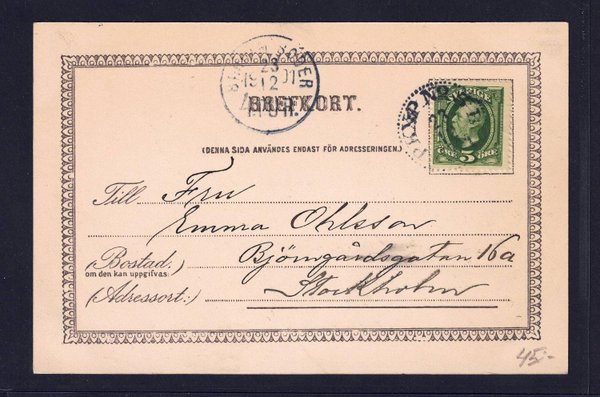 23
1901
12
BREFKORT.
SVERIGE
5 ÖRE
(DENNA SIDA ANVÄNDES ENDAST FÖR ADRESSERINGEN.)
Till Fru
Emma Ohlsson
(Bostad: Björngårdsgatan 16a
om den kan uppgifvas.)
(Adressort:) Stockholm
45:-